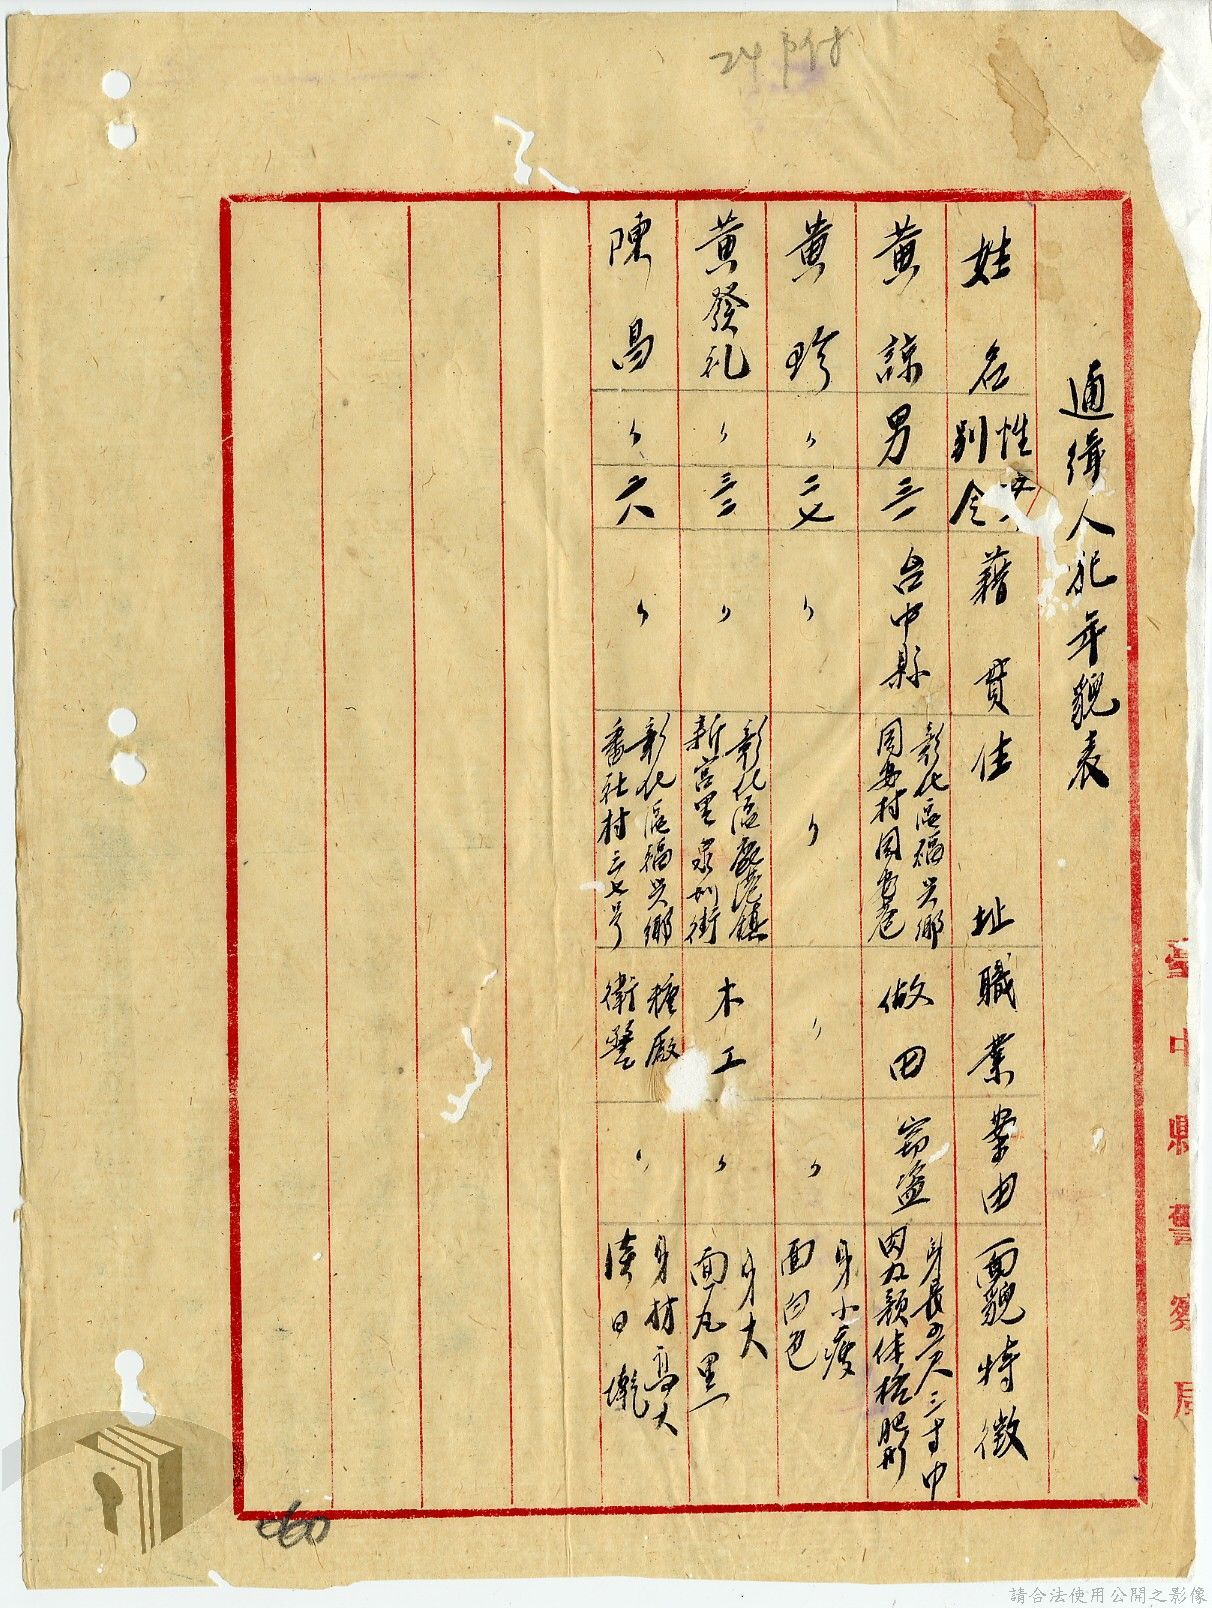 通緝人犯年貌表
姓名 性別 年令 藉貫 住址 職業 案由 面貌特徵
黄諒 男 三一 台中縣 彰化區福兴鄉同安村同安巷 做田 竊盜 身長五尺三寸中肉丸顏体格肥形
黄珍 〃 二七 〃 〃 〃 〃 身小瘦面白色
黄發礼 〃 三二 〃 彰化區鹿港鎮新宮里泉州街 木工 〃 身大面丸黒
陳昌 〃 二八 〃 彰化區福兴鄉番社村三七号 糖廠衛警 〃 身材高大
24附
060
臺中縣警察局
請合法使用公開之影像